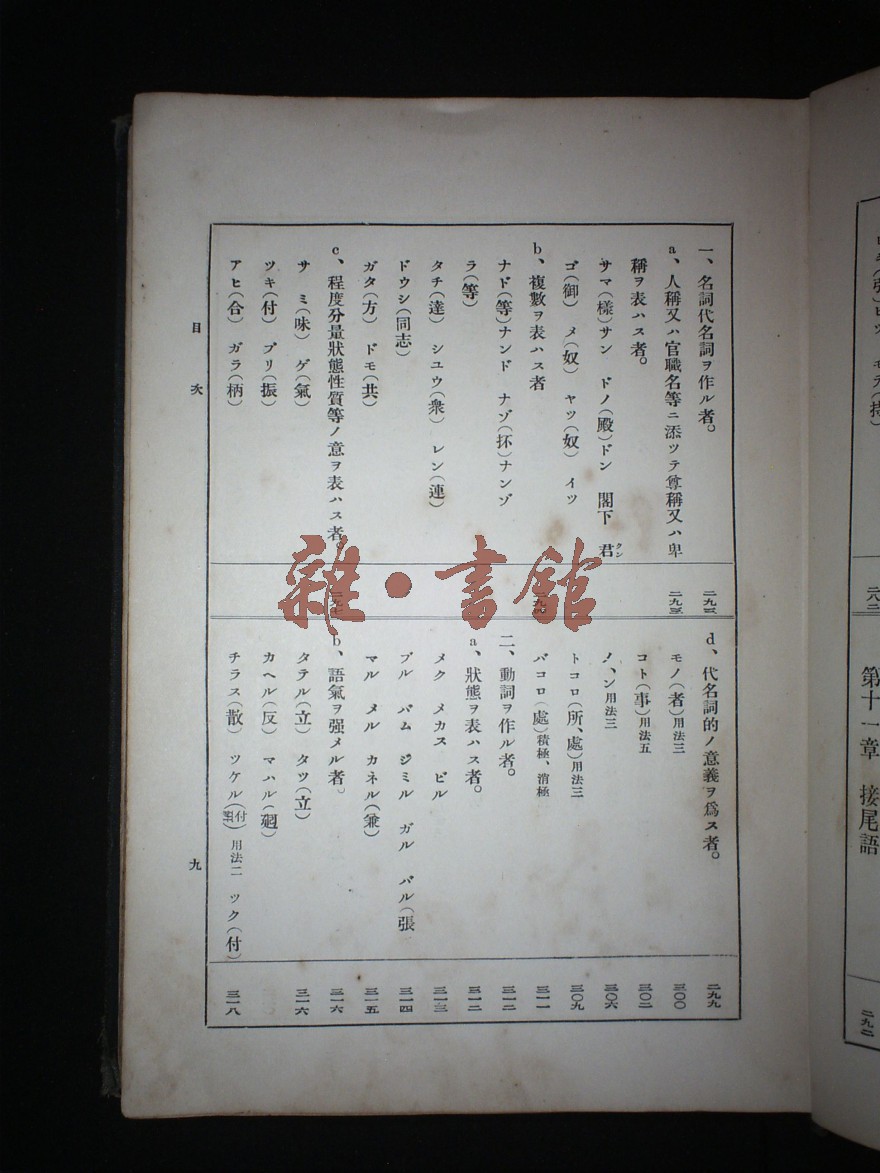 一、名詞代名詞ヲ作ル者。 二九三
a、人稱又ハ官職名等ニ添ツテ尊稱又ハ卑 二九三
稱ヲ表ハス者。
サマ(樣)サン ドノ(殿)ドン 閣下 君クン
ゴ(御) メ(奴) ヤツ(奴) イツ
b、複數ヲ表ハス者
ナド(等)ナンド ナゾ(抔)ナンゾ
ラ(等)
タチ(達) シユウ(衆) レン(連)
ドウシ(同志)
ガタ(方) ドモ(共)
c、程度分量狀態性質等ノ意ヲ表ハス者
サ ミ(味) ゲ(氣)
ツキ(付) プリ(振)
アヒ(合) ガラ(柄)
d、代名詞的ノ意義ヲ爲ス者。 二九九
モノ(者)用法三 三〇〇
コト(事)用法五 三〇二
ノ、ン用法三 三〇六
トコロ(所、處)用法三 三〇九
バコロ(處)積極、消極 三一一
二、動詞ヲ作ル者。 三一二
a、狀態ヲ表ハス者。 三一二
メク メカス ビル 三一三
ブル バム ジミル ガル バル(張 三一四
マル メル カネル(兼) 三一五
b、語氣ヲ强メル者。 三一六
タテル(立) タツ(立) 三一六
カヘル(反) マハル(廻)
チラス(散) ツケル(付) 用法二 ツク(付) 三一八
目次
九
第十一章 接尾語 二九二
二八二
雜·書館